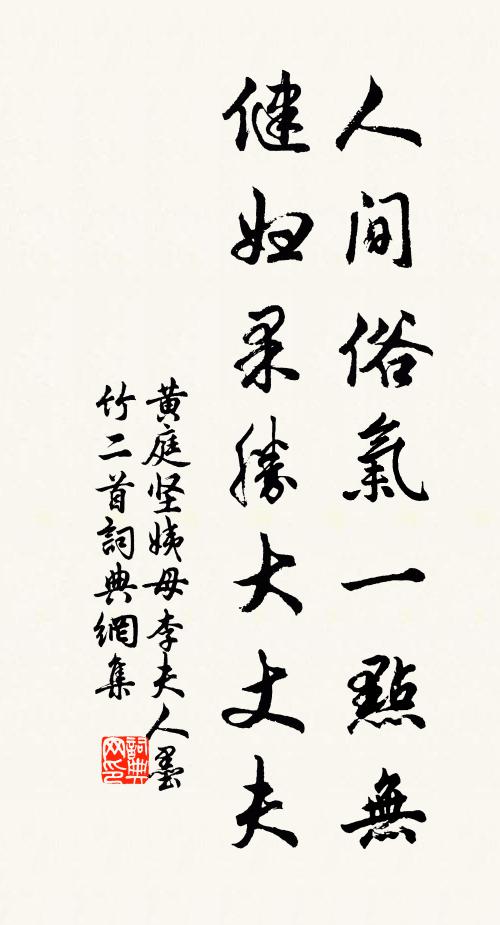 人间俗氣一點無
健妇果勝大丈夫
黄庭坚姨母李夫人墨
竹二首詞典網集
詞典
网印